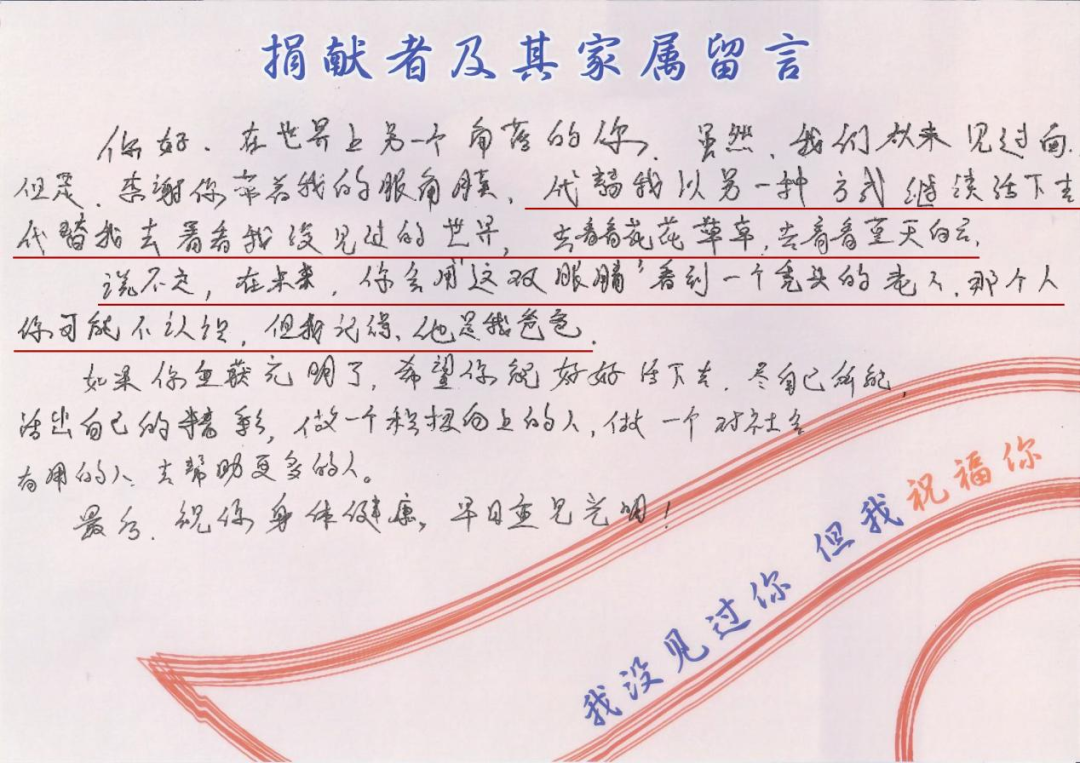 捐献者及其家属留言
你好、在世界上另一个角落的你、虽然、我们从来见过面、
但是、感谢你带着我的眼角膜、代替我以另一种方式继续活下去
代替我去看看我没见过的世界，去看看花花草草，去看看蓝天白云、
说不定，在未来，你会用“这双眼睛”看到一个秃头的老人、那个人
你可能不认识，但我记得、他是我爸爸、
如果你重获光明了，希望你能好好活下去、尽自己所能，
活出自己的精彩，做一个积极向上的人，做一个对社会
有用的人、去帮助更多的人。
最后、祝你身体健康，早日重见光明！
我没见过你 但我祝福你